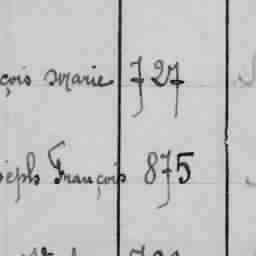 çois Marie 727
seph François 875